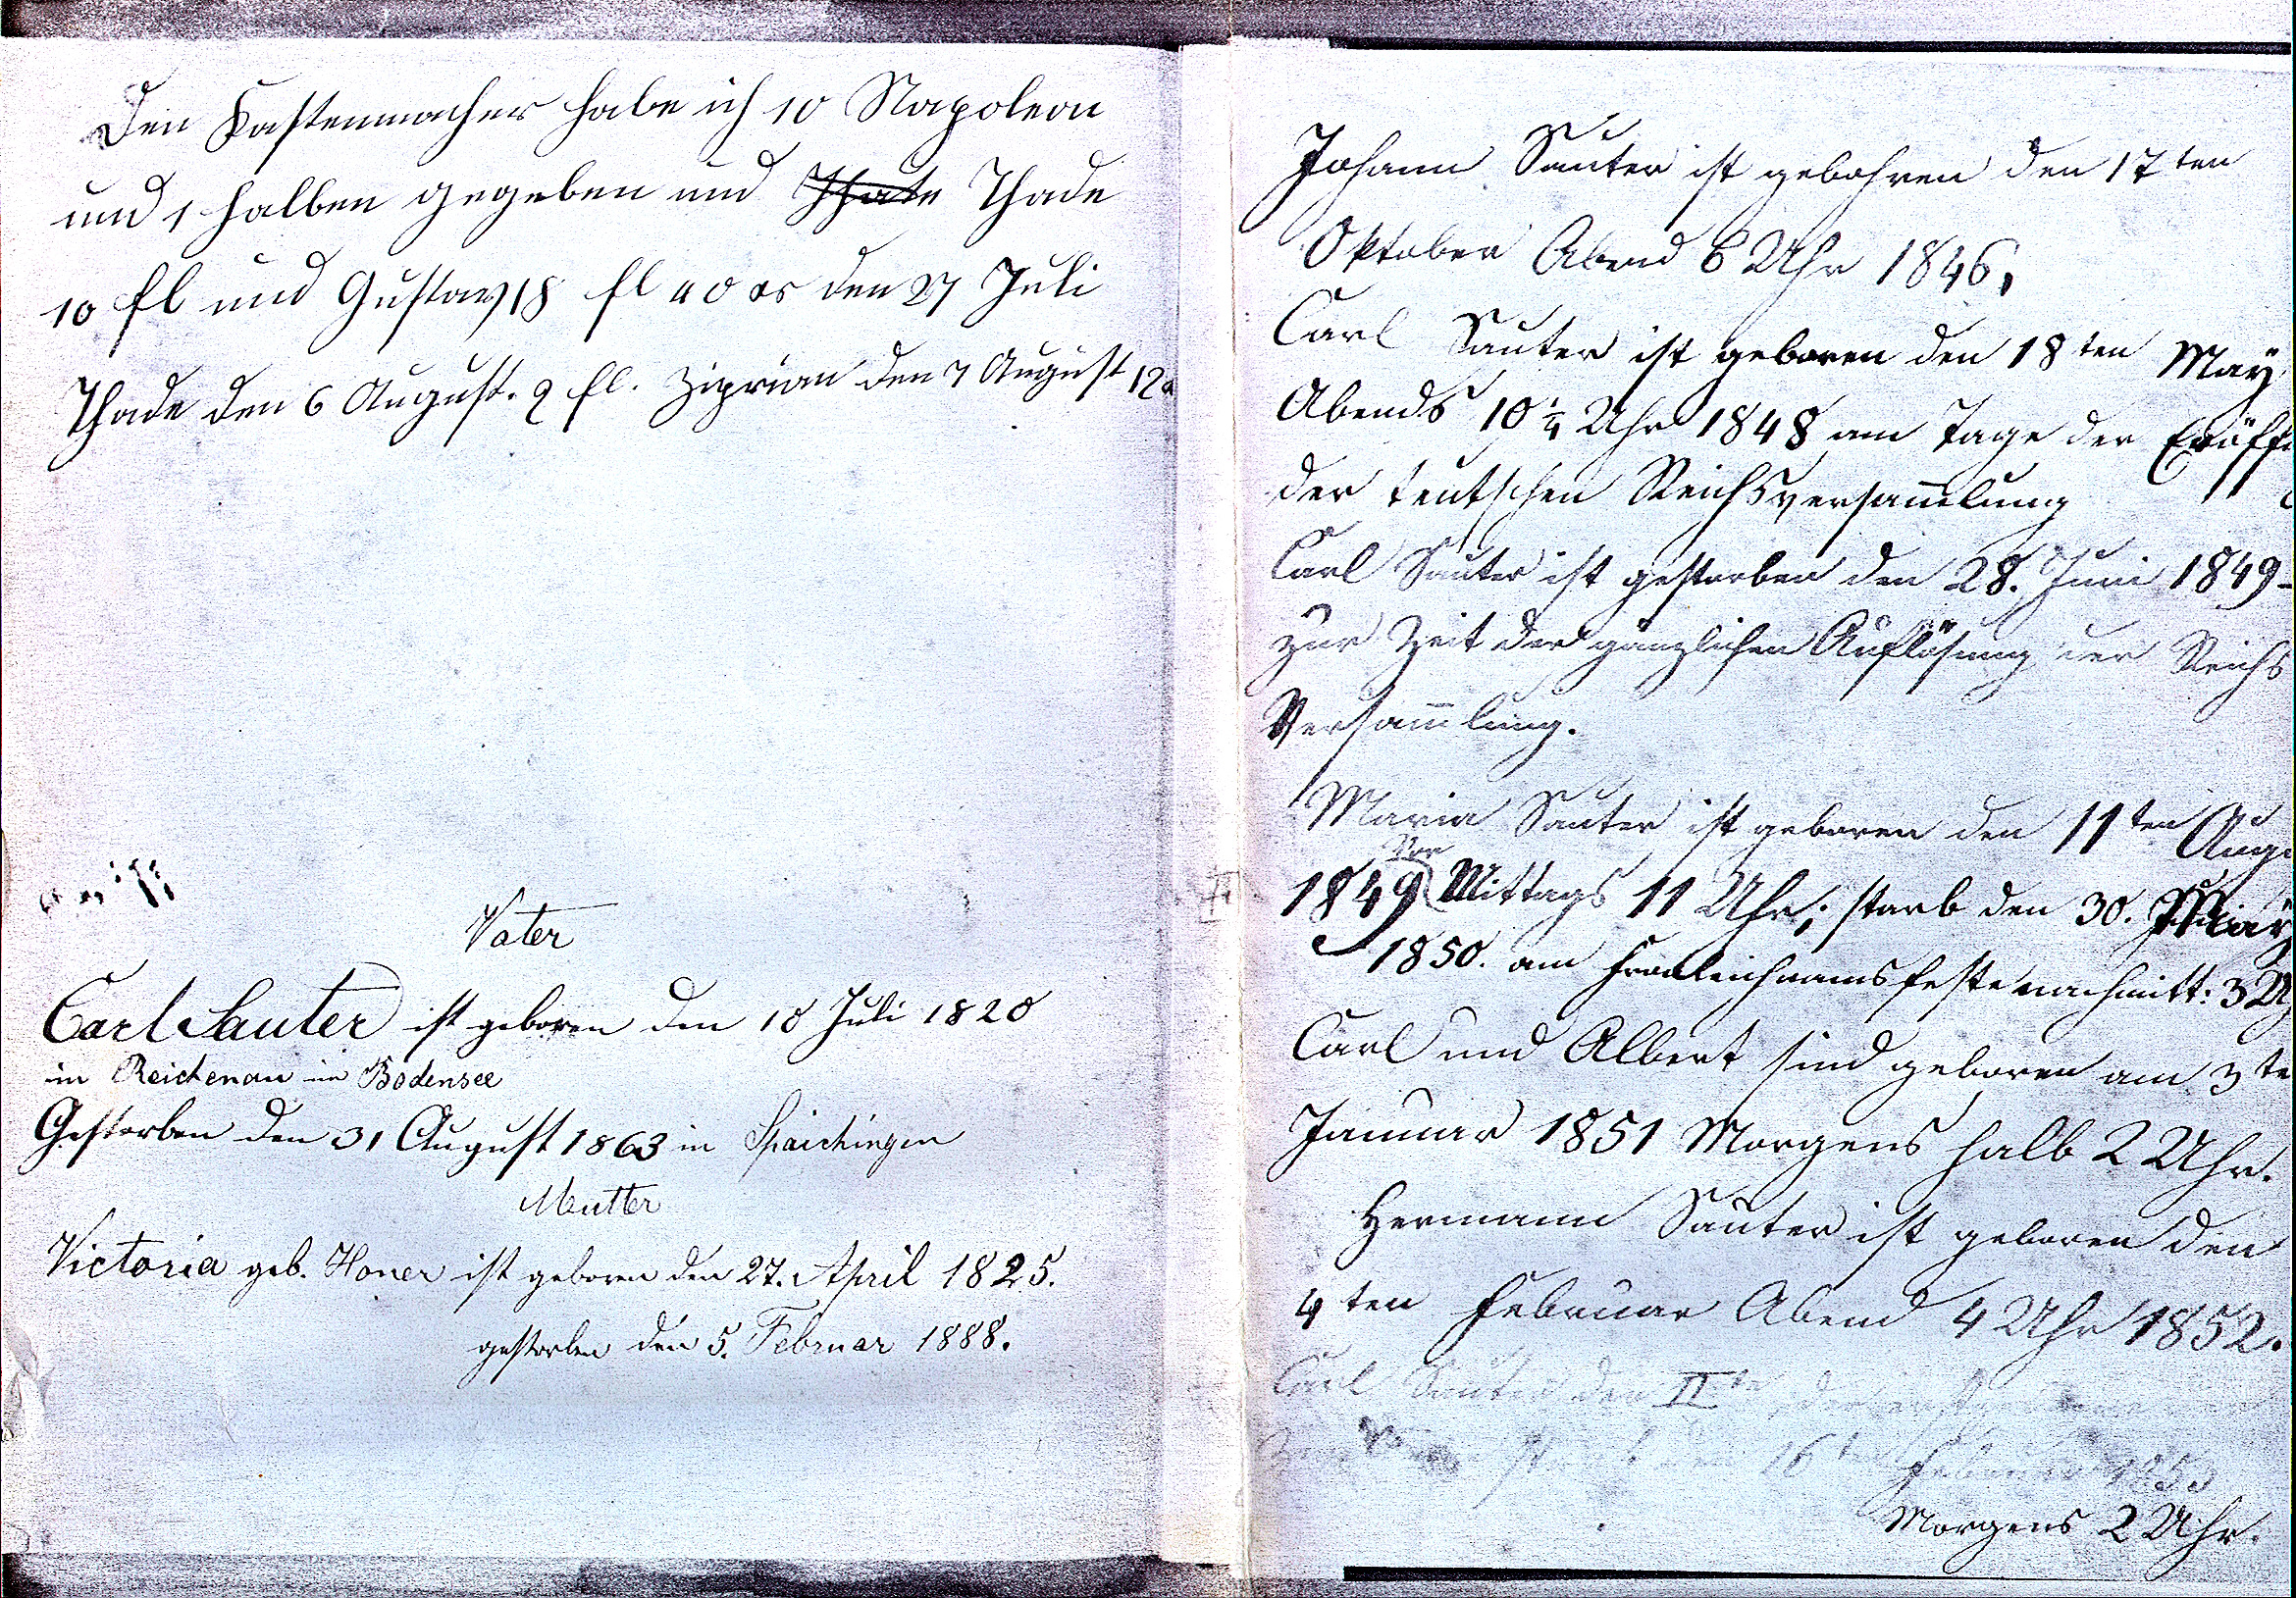 Den Kastenmacher habe ich 10 Napoleon
und 1 halben gegeben und Thate Thade
10 fl und Gustav 18 fl 40 xs den 27 Juli
Thade den 6 August. 2 fl. Ziprian den 7 August 12
Vater
Carl Sauter ist geboren den 10 Juli 1820
in Reichenau im Bodensee
Gestorben den 31 August 1863 in Spaichingen
Mutter
Victoria geb. Honer ist geboren den 27. April 1825.
gestorben den 5. Februar 1888.
Johann Sauter ist gebohren den 17ten
Oktober Abend 6 Uhr 1846,
Carl Sauter ist geboren den 18ten May
Abends 10 1/4 Uhr 1848 am Tage der Eröff
der teutschen Reichsversam̅elung
Carl Sauter ist gestorben den 28. Juni 1849-
zur Zeit der gänzlichen Auflösung der Reichs
Versam̅lung.
Maria Sauter ist geboren den 11ten Aug
1849 Vor Mittags 11 Uhr; starb den 30. May
1850. am Fronleichnamsfeste nachmitt: 3 U
Carl und Albert sind geboren am 3te
Januar 1851 Morgens halb 2 Uhr.
Hermann Sauter ist geboren den
4ten Februar Abend 4 Uhr 1852.
Carl Sauter der IIte
den 16ten Februar 1853
Morgens 2 Uhr.